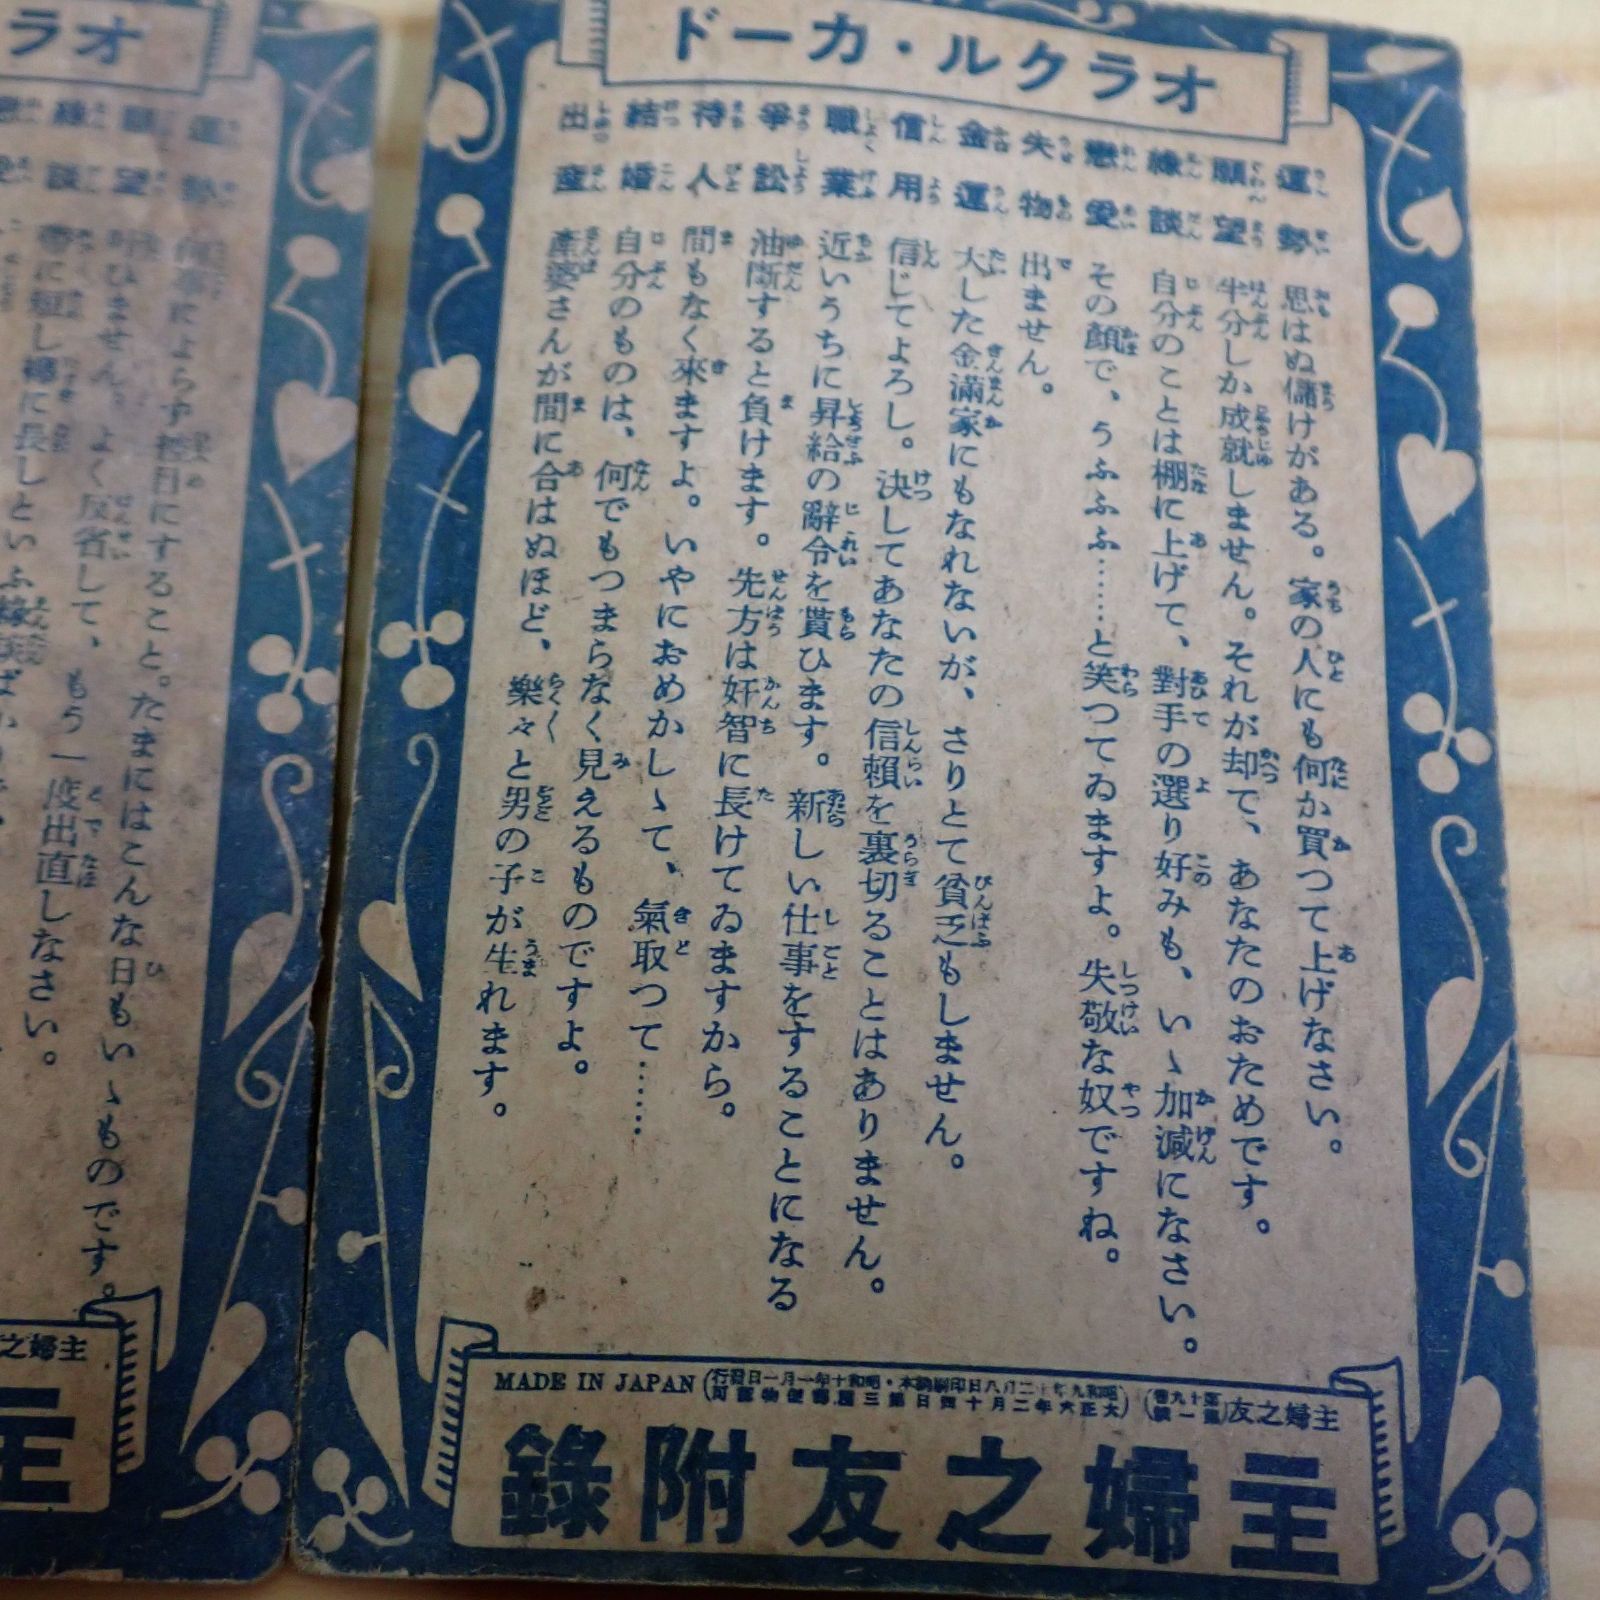 オラクル・カード
運勢 思はぬ儲けがある。家の人にも何か買つて上げなさい。
願望 半分しか成就しません。それが却て、あなたのおためです。
縁談 自分のことは棚に上げて、對手の選り好みも、いゝ加減になさい。
戀愛 その顔で、うふふふ……と笑つてゐますよ。失敬な奴ですね。
失物 出ません。
金運 大した金滿家にもなれないが、さりとて貧乏もしません。
信用 信じてよろし。決してあなたの信頼を裏切ることはありません。
職業 近いうちに昇給の辭令を貰ひます。新しい仕事をすることになる
爭訟 油斷すると負けます。先方は奸智に長けてゐますから。
待人 間もなく來ますよ。いやにおめかしゝて、氣取つて……
結婚 自分のものは、何でもつまらなく見えるものですよ。
出産 產婆さんが間に合はぬほど、樂々と男の子が生れます。
主婦之友 (第十九巻第一號)
(昭和九年十二月八日印刷納本・昭和十年一月一日發行
大正六年二月十四日第三種郵便物認可)
MADE IN JAPAN
主婦之友附錄
オラ
運勢
願望
によらず控目にすること。たまにはこんな日もいゝものです。
ひません。よく反省して、もう一度出直しなさい。
帶に短し襷に長しといふ
主婦之
主